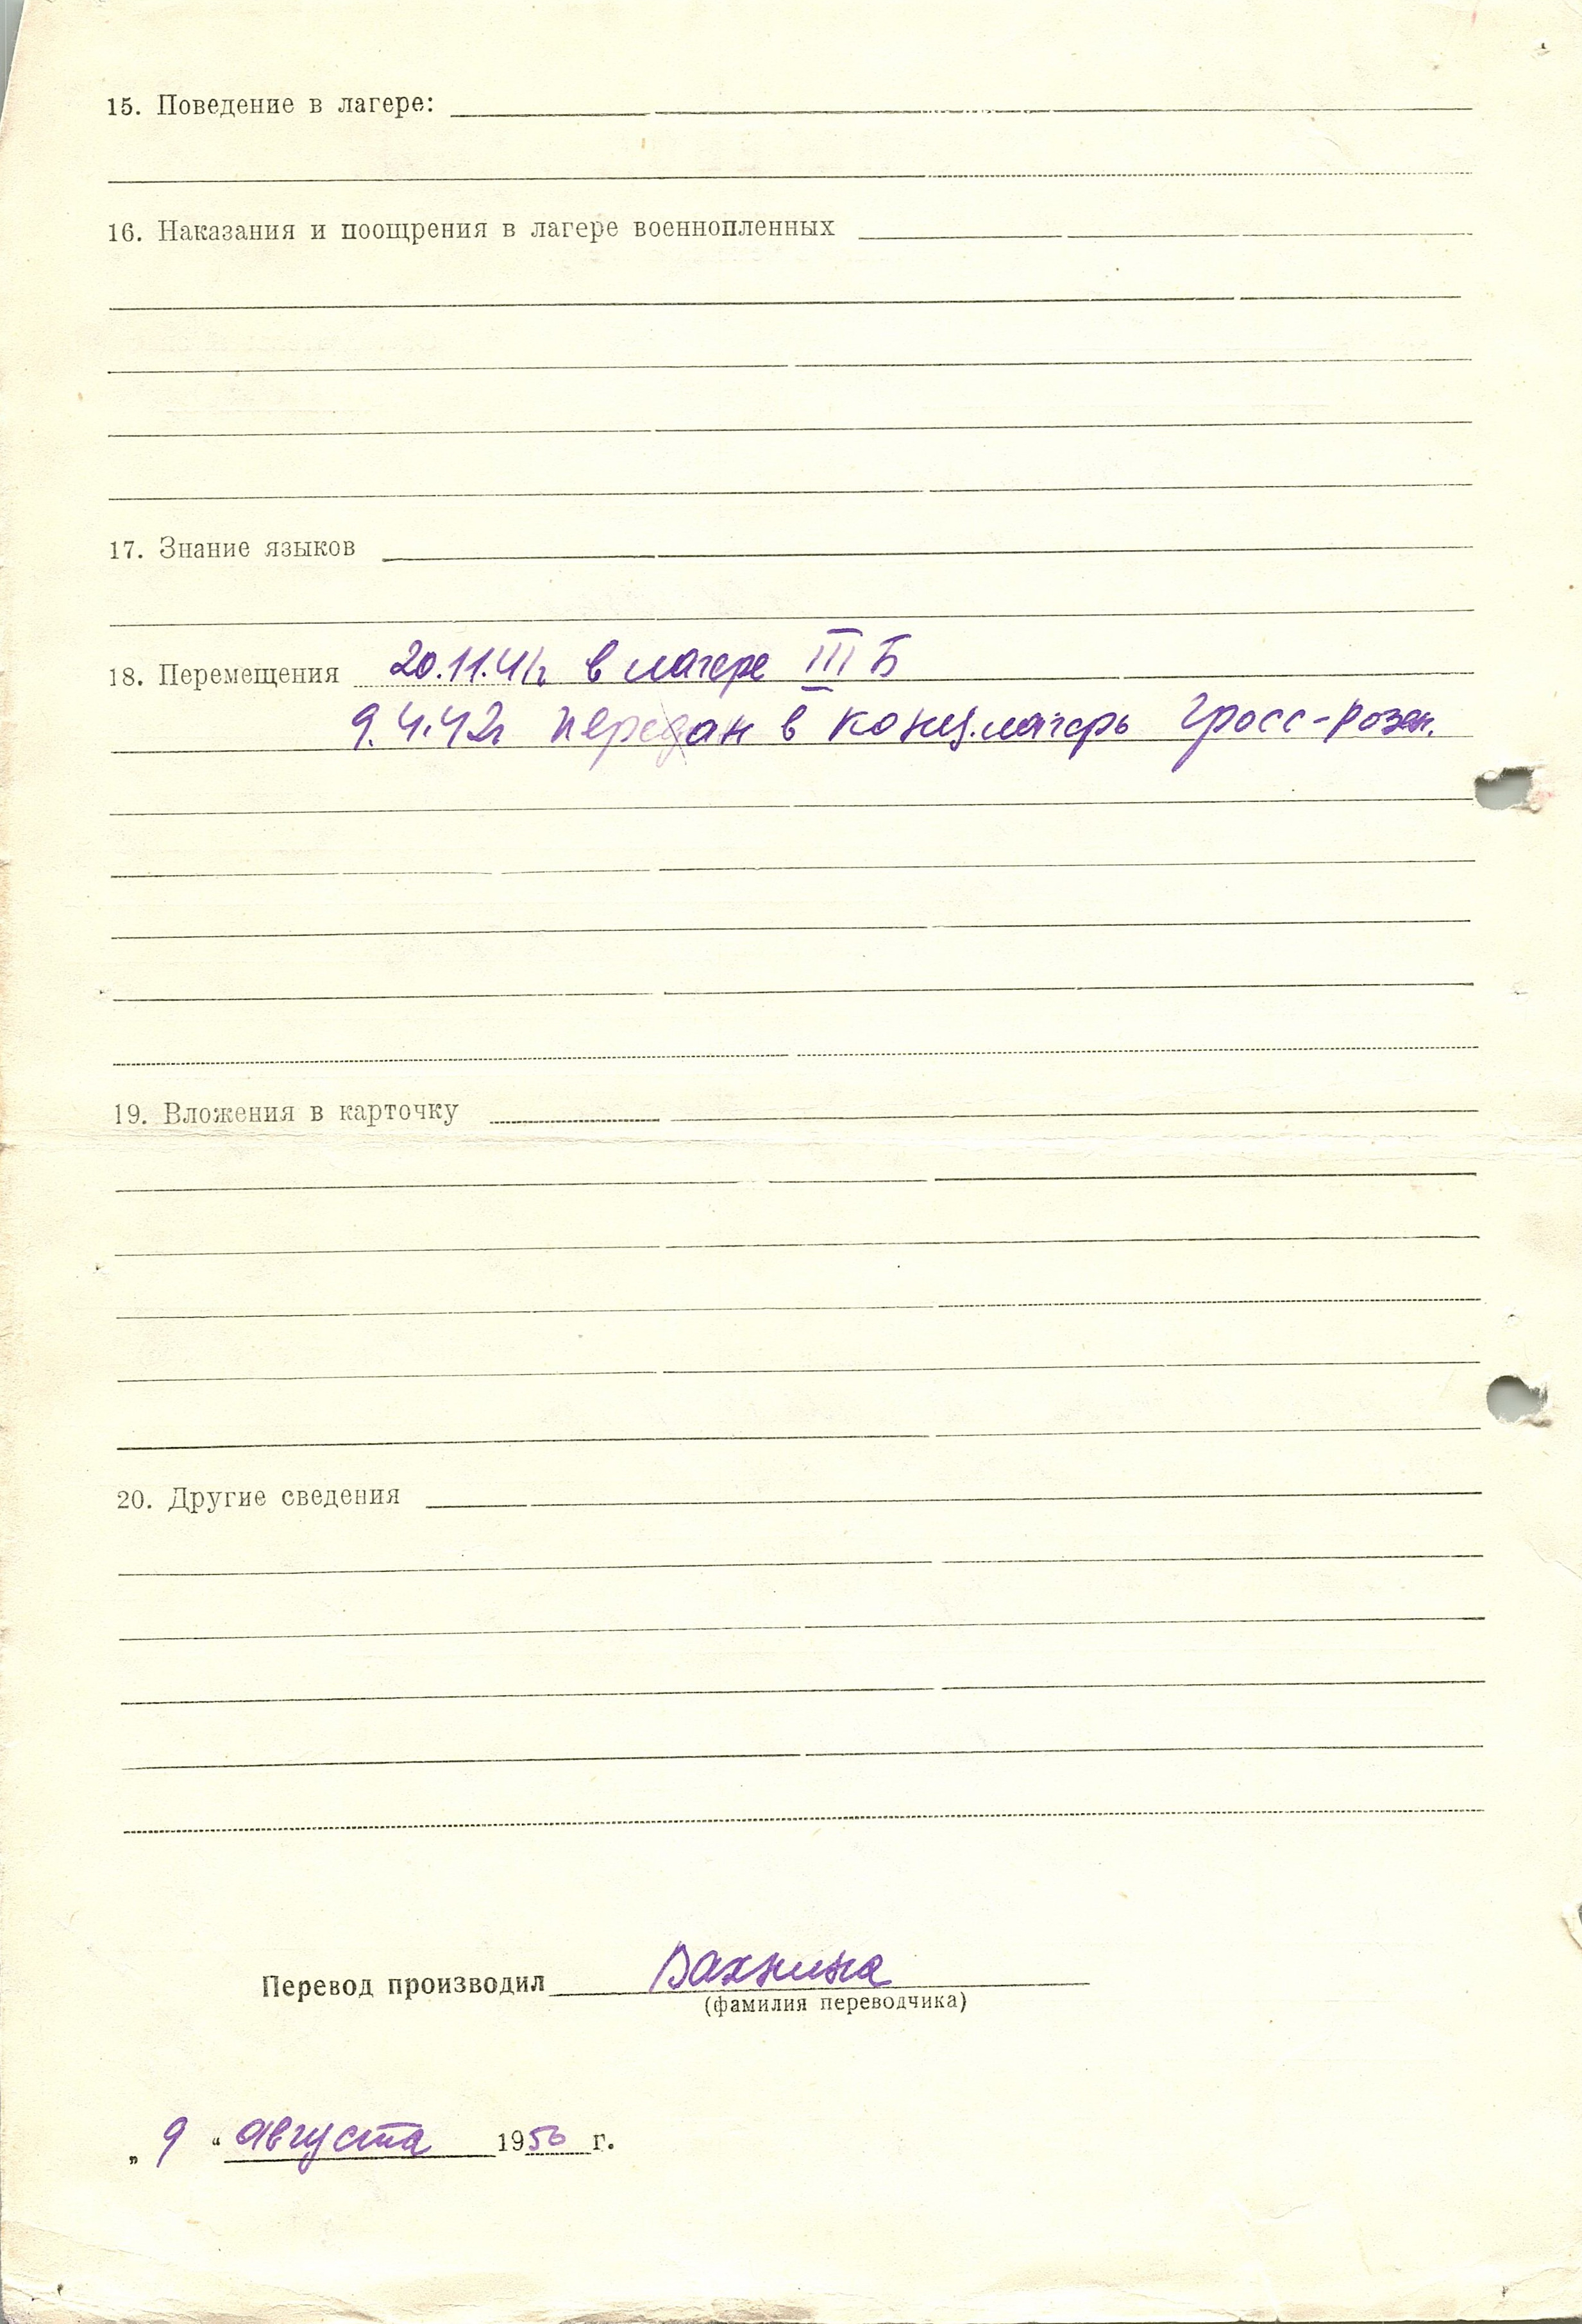 15. Поведение в лагере:
16. Наказания и поощрения в лагере военнопленных
17. Знание языков
18. Перемещения 20.11.41г в лагере III Б
9.4.42г передан в конц.лагерь Гросс-Розен.
19. Вложения в карточку
20. Другие сведения
Перевод производил Вахнина
(фамилия переводчика)
„ 9 “ августа 1950 г.